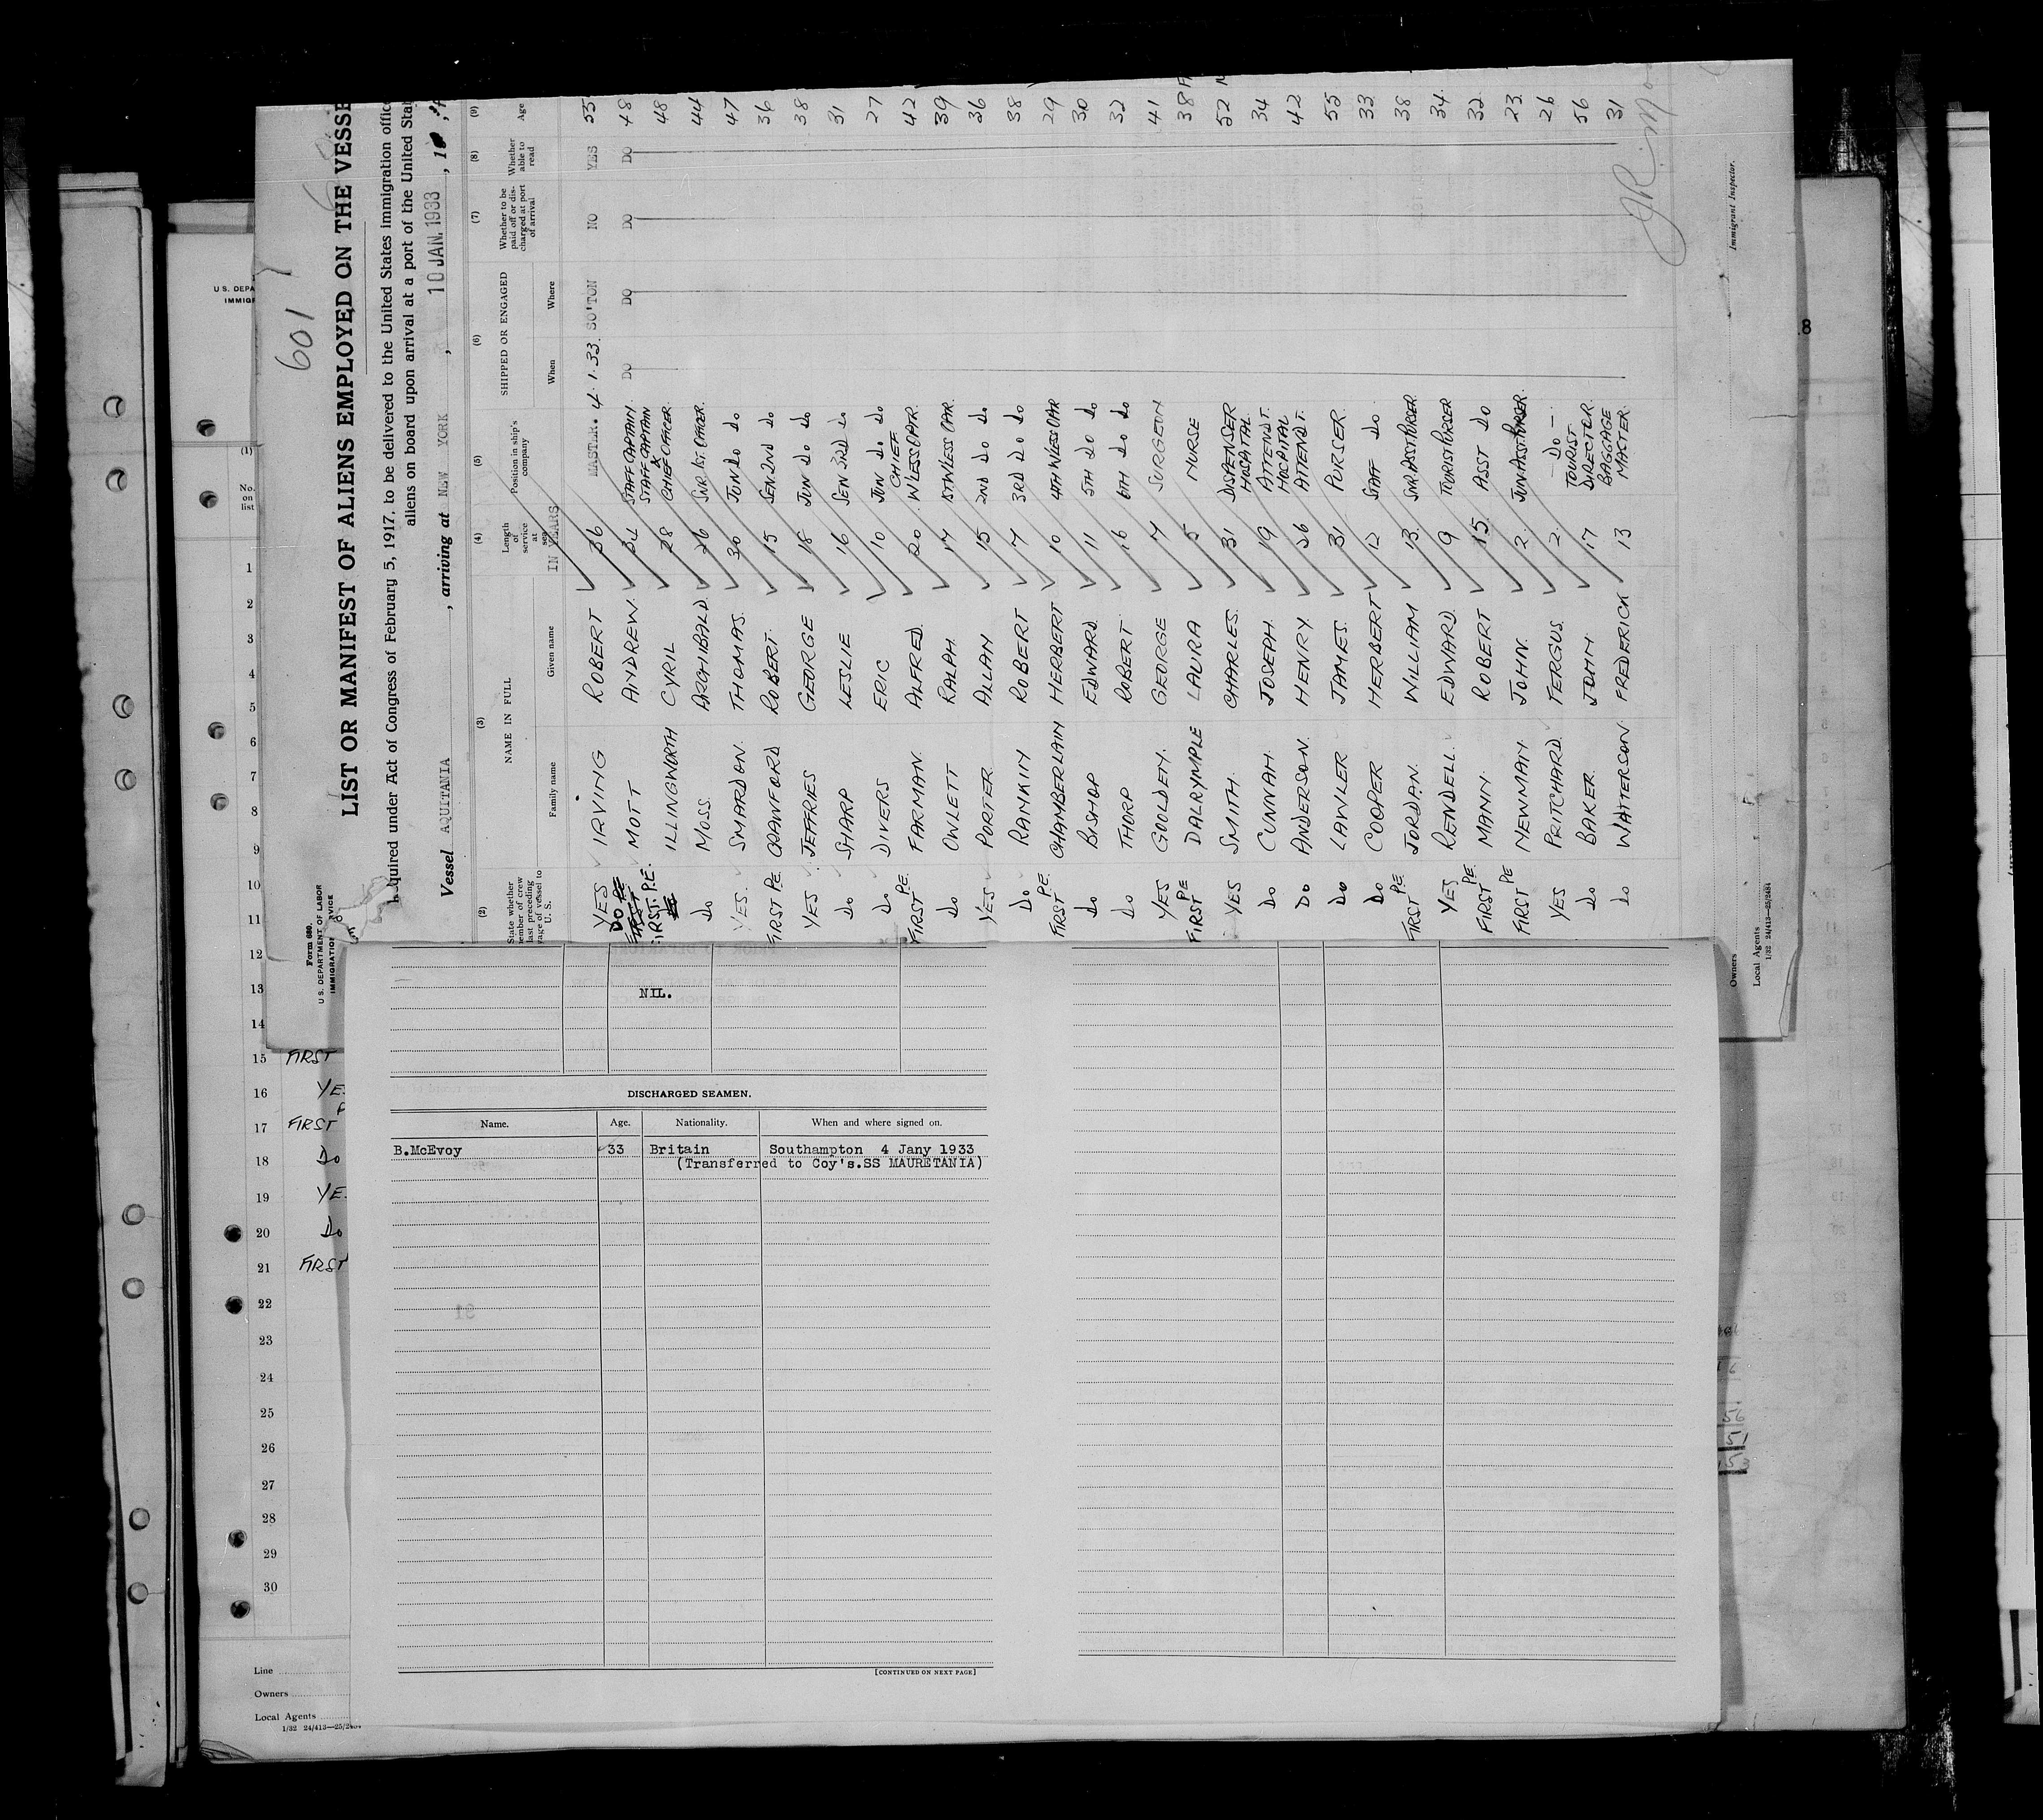 601
LIST OR MANIFEST OF ALIENS EMPLOYED ON THE VESSE
quired under Act of Congress of February 5, 1917, to be delivered to the United States immigration offic
aliens on board upon arrival at a port of the United Sta
Vessel AQUITANIA , arriving at NEW YORK , 10 JAN. 1933 , 1
Form 680
U. S. DEPARTMENT OF LABOR
IMMIGRATION SERVICE
(2) (3) (4) (5) (6) (7) (8) (9)
State whether member of crew last preceding voyage of vessel to U. S.
NAME IN FULL
Family name Given name
Length of service at sea
IN YEARS
Position in ship's company
SHIPPED OR ENGAGED
When Where
Whether to be paid off or discharged at port of arrival
Whether able to read
Age
YES IRVING ROBERT 36 MASTER. 4.1.33. SO'TON NO YES 55
DO MOTT ANDREW. 34 STAFF CAPTAIN DO DO DO DO 48
FIRST. P.E. ILLINGWORTH CYRIL 28 STAFF CAPTAIN CHIEF OFFICER. 48
DO MOSS. ARCHIBALD. 26 SNR. 1ST. OFFICER. 44
YES. SMARDON. THOMAS. 30 JUN DO DO 47
FIRST P.E. CRAWFORD ROBERT. 15 SEN 2ND DO 36
YES JEFFRIES GEORGE 18 JUN DO DO 38
DO SHARP LESLIE 16 SEN 3RD DO 31
DO DIVERS ERIC 10 JUN DO DO 27
FIRST P.E. FARMAN. ALFRED. 20 CHIEF W'LESS OP'TR. 42
DO OWLETT RALPH. 14 1ST W'LESS OP'R. 39
YES PORTER ALLAN 15 2ND DO DO 36
DO RANKIN ROBERT 7 3RD DO DO 38
FIRST P.E. CHAMBERLAIN HERBERT 10 4TH W'LESS OP'R 29
DO BISHOP EDWARD. 11 5TH DO DO 30
DO THORP ROBERT 16 6TH DO DO 32
YES GOOLDEN. GEORGE 14 SURGEON 41
FIRST P.E DALRYMPLE LAURA 5 NURSE 38
YES SMITH. CHARLES. 31 DISPENSER 52
DO CUNNAH. JOSEPH. 19 HOSPITAL ATTEND'T. 34
DO ANDERSON. HENRY. 26 HOSPITAL ATTEND'T. 42
DO LAWLER JAMES. 31 PURSER 55
DO COOPER HERBERT 12 STAFF DO 33
FIRST P.E JORDAN. WILLIAM 13. SNR. ASST PURSER 38
YES RENDELL. EDWARD. 9 TOURIST PURSER 34
FIRST P.E. MANN ROBERT 15. ASST DO 32
FIRST P.E NEWMAN. JOHN. 2. JUN. ASST. PURSER. 23
YES PRITCHARD. FERGUS. 2. — DO — 26
DO BAKER JOHN 17 TOURIST DIRECTOR. 56
DO WATTERSON. FREDERICK 13 BAGGAGE MASTER. 31
Immigrant Inspector.
Owners
Local Agents
1/32 24/413—25/2484
U. S. DEPA
IMMIG
(1)
No. on list
1
2
3
4
5
6
7
8
9
10
11
12
13
14
15 FIRST
16 YE
17 FIRST
18 DO
19 YE
20 DO
21 FIRST
22
23
24
25
26
27
28
29
30
Line
Owners
Local Agents
1/32 24/413—25/2484
NIL.
DISCHARGED SEAMEN.
Name. Age. Nationality. When and where signed on.
B.McEvoy 33 Britain Southampton 4 Jany 1933
(Transferred to Coy's.SS MAURETANIA)
[CONTINUED ON NEXT PAGE]
8